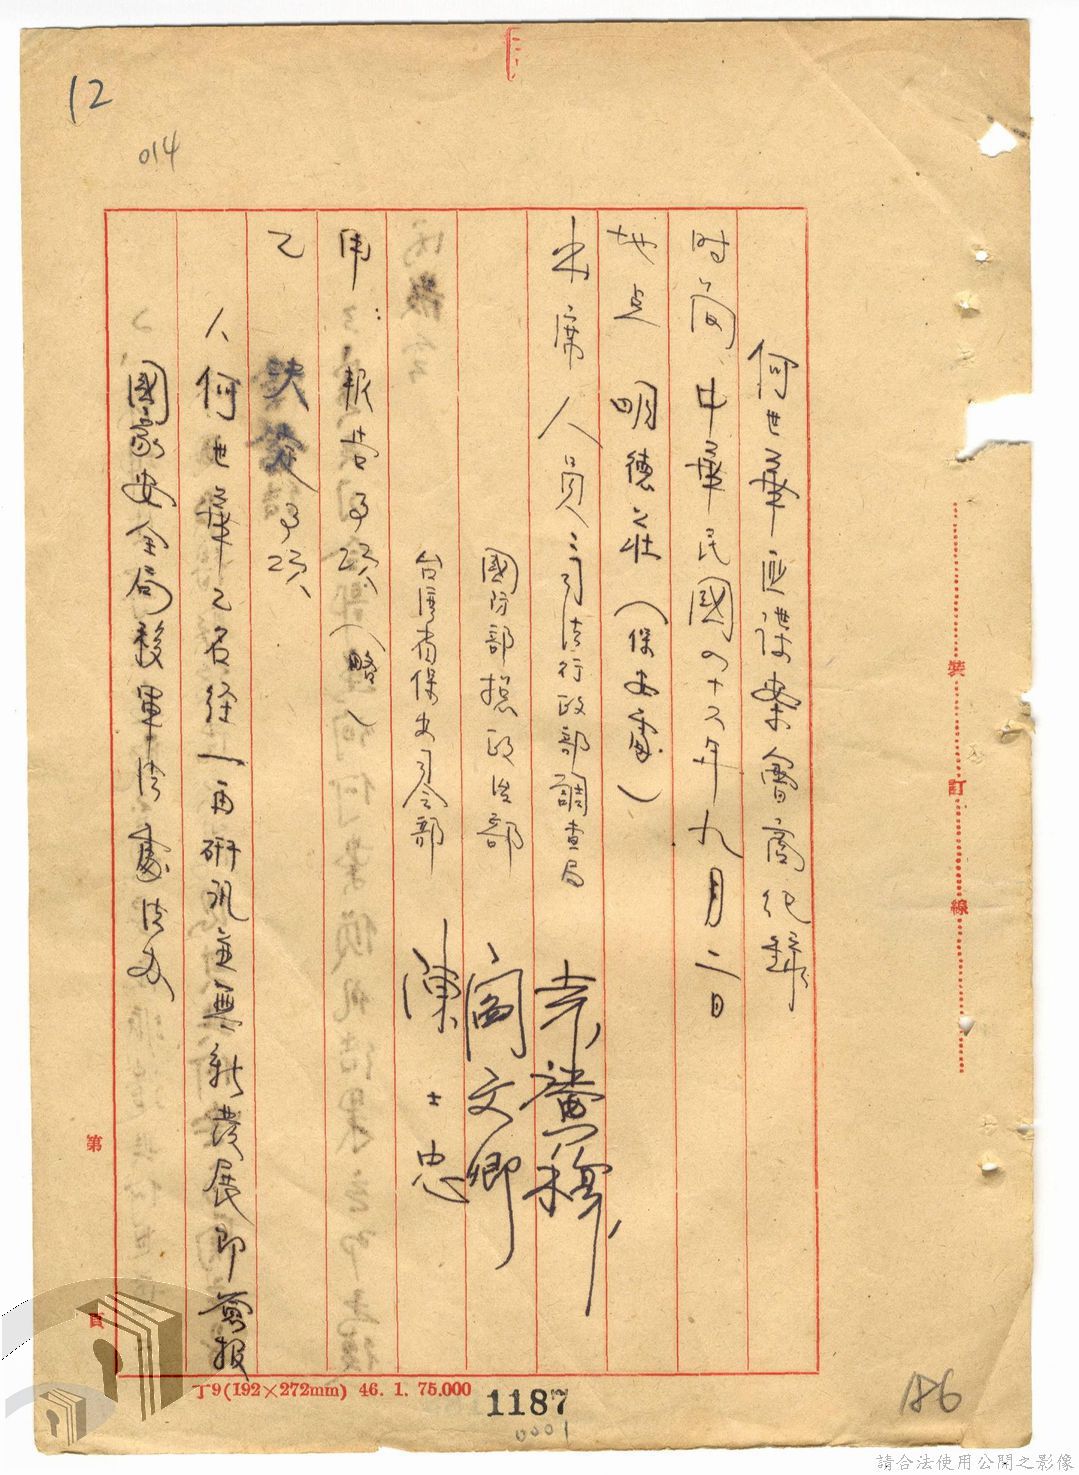 12
014
何世華匪諜案會商紀錄
时间：中華民國四十六年九月二日
地点 明德莊（保安處）
出席人員：司法行政部調查局
國防部總政治部 阎文卿
台湾省保安司令部 陳士忠
甲：報告事項（略）
乙 決定事項
人何世華乙名経一再研訊並無新發展即簽报
國家安全局移軍法處法办
裝
訂
線
第
頁
丁9(192×272mm) 46. 1. 75.000
1187
0001
186
請合法使用公開之影像